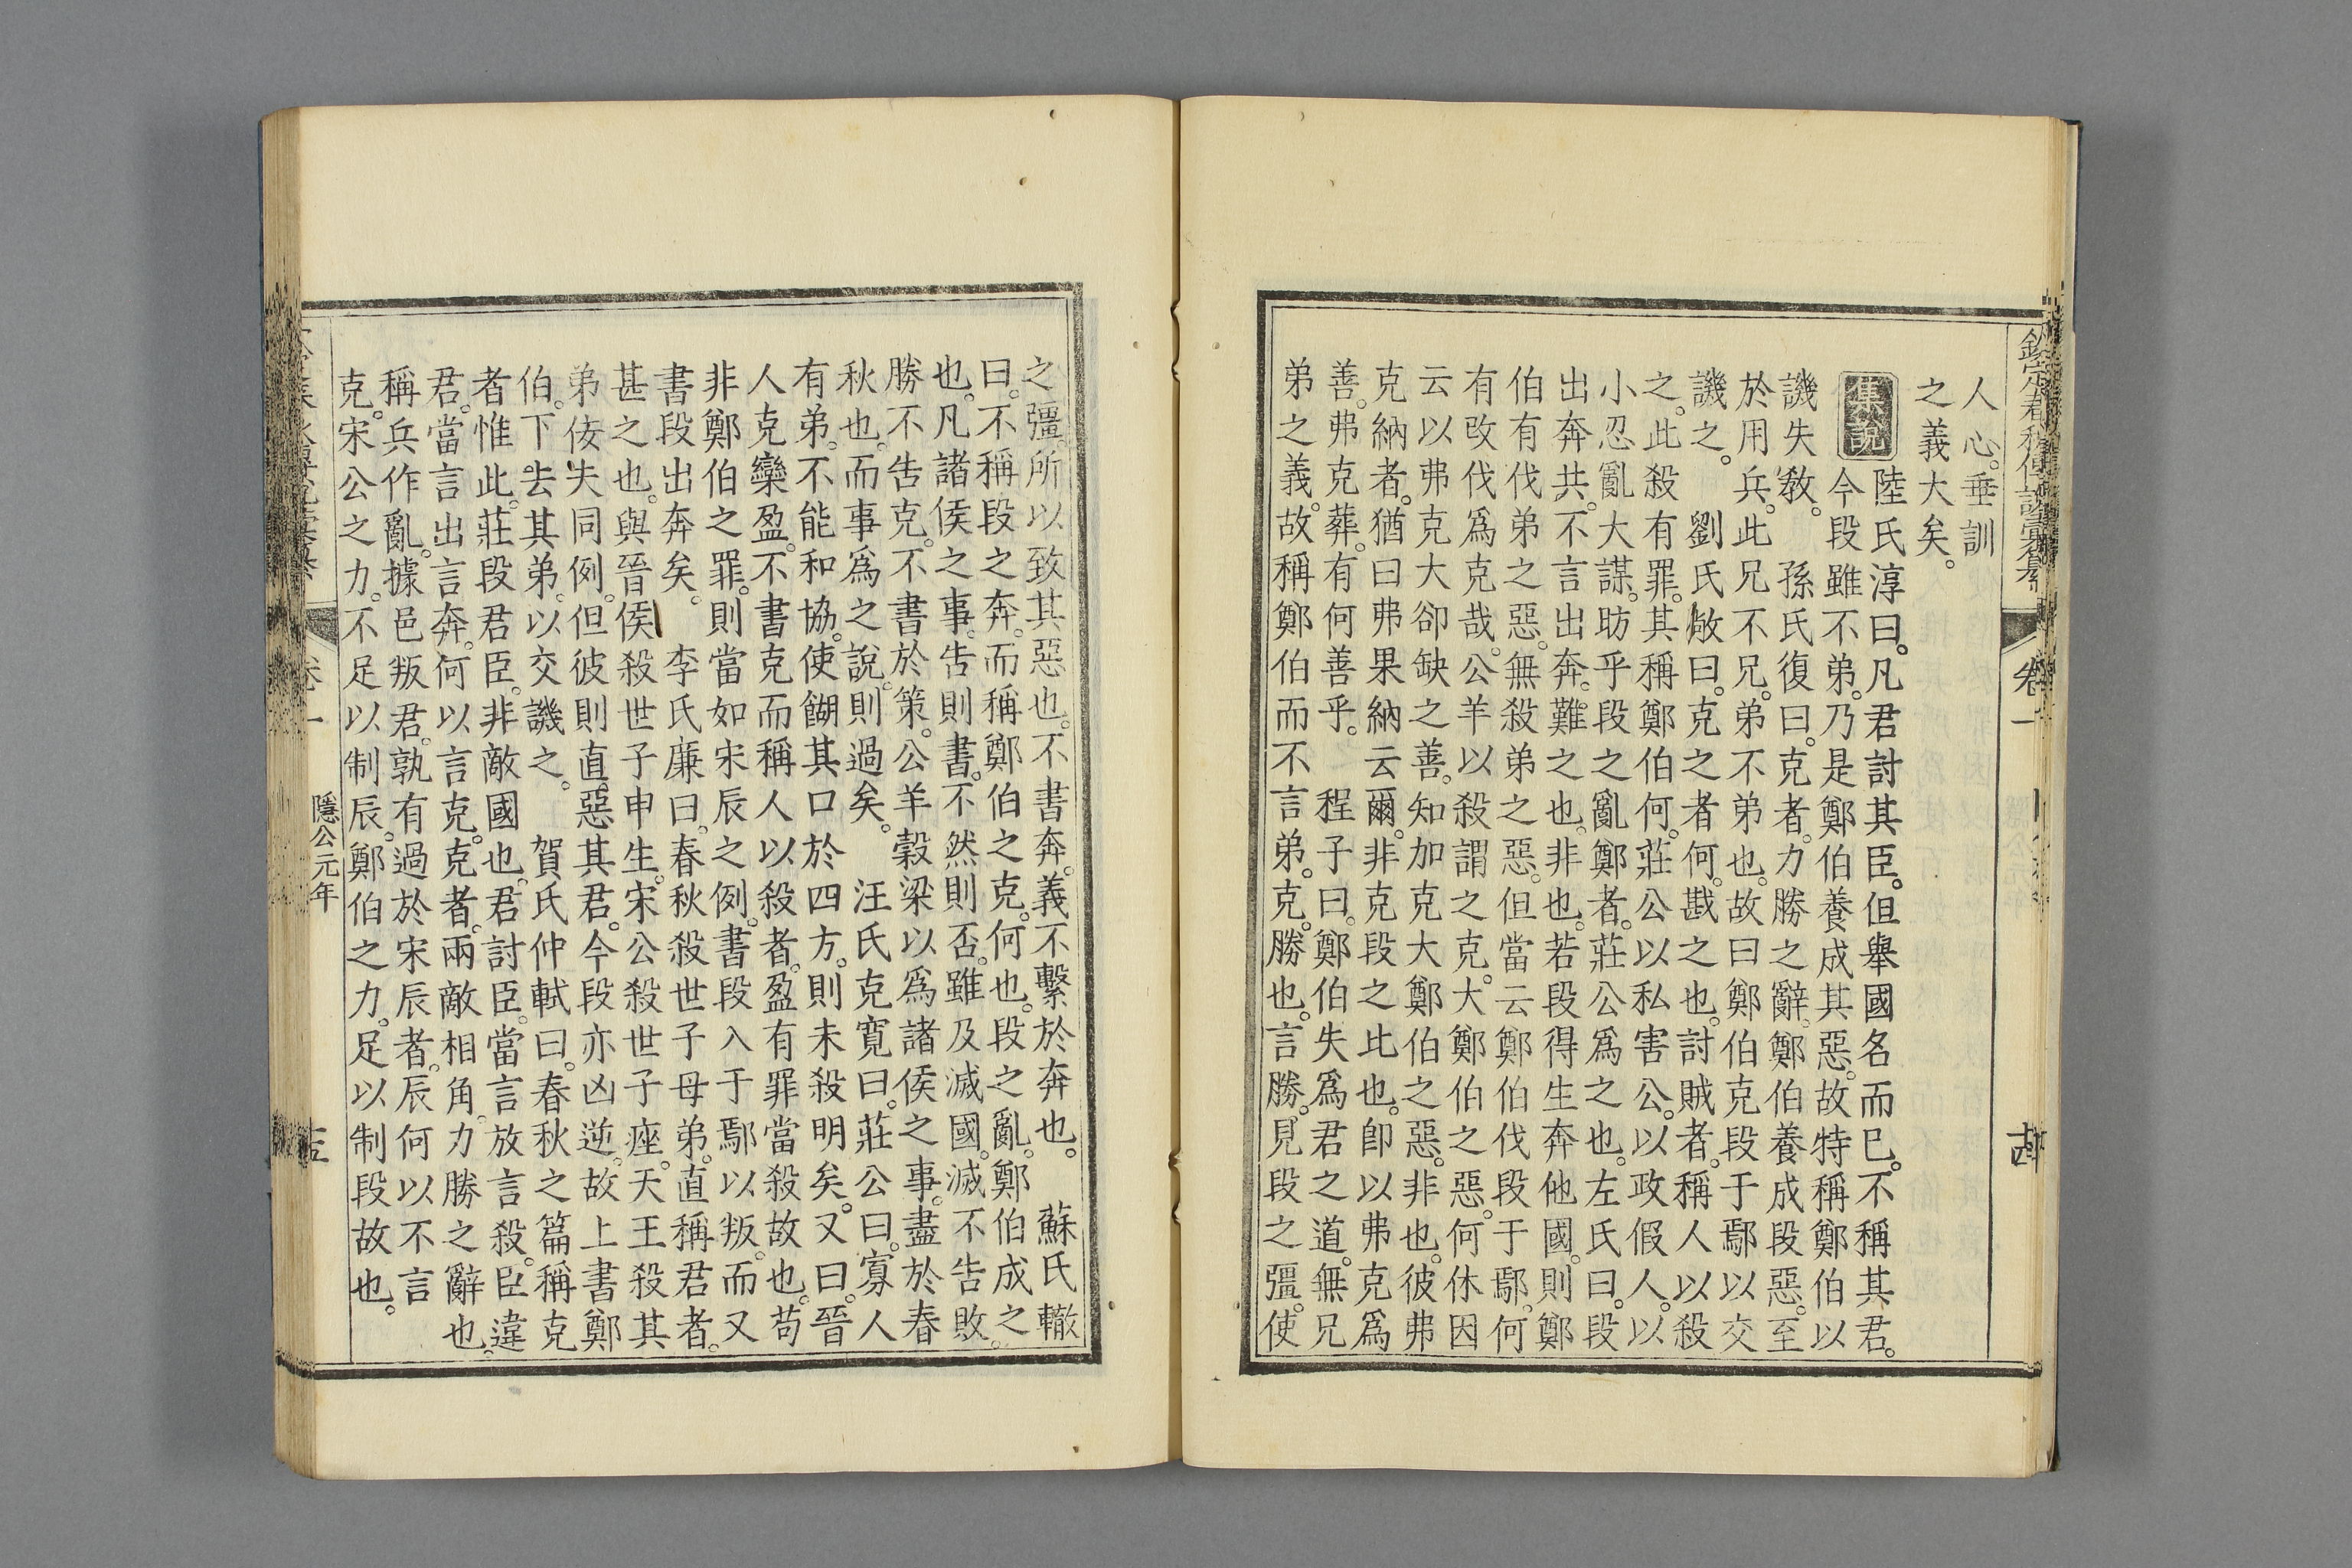 欽定春秋傳說彙纂 卷一
人心。垂訓
之義大矣。
集說 陸氏淳曰。凡君討其臣。但舉國名而已。不稱其君。
今段雖不弟。乃是鄭伯養成其惡。故特稱鄭伯以
譏失教。 孫氏復曰。克者。力勝之辭。鄭伯養成段惡。至
於用兵。此兄不兄。弟不弟也。故曰鄭伯克段于鄢以交
譏之。 劉氏敞曰。克之者何。戡之也。討賊者。稱人以殺
之。此殺有罪。其稱鄭伯何。莊公以私害公。以政假人。以
小忍亂大謀。昉乎段之亂鄭者。莊公爲之也。左氏曰。段
出奔共。不言出奔。難之也。非也。若段得生奔他國。則鄭
伯有伐弟之惡。無殺弟之惡。但當云鄭伯伐段于鄢。何
有改伐爲克哉。公羊以殺謂之克。大鄭伯之惡。何休因
云以弗克大卻缺之善。知加克大鄭伯之惡。非也。彼弗
克納者。猶曰弗果納云爾。非克段之比也。卽以弗克爲
善。弗克葬。有何善乎。 程子曰。鄭伯失爲君之道。無兄
弟之義。故稱鄭伯而不言弟。克。勝也。言勝。見段之彊。使
之彊。所以致其惡也。不書奔。義不繫於奔也。 蘇氏轍
曰。不稱段之奔。而稱鄭伯之克。何也。段之亂。鄭伯成之
也。凡諸侯之事。告則書。不然則否。雖及滅國。滅不告敗。
勝不告克。不書於策。公羊穀梁以爲諸侯之事。盡於春
秋也。而事爲之說。則過矣。 汪氏克寬曰。莊公曰。寡人
有弟。不能和協。使餬其口於四方。則未殺明矣。又曰。晉
人克欒盈。不書克而稱人以殺者。盈有罪當殺故也。苟
非鄭伯之罪。則當如宋辰之例。書段入于鄢以叛。而又
書段出奔矣。 李氏廉曰。春秋殺世子母弟。直稱君者。
甚之也。與晉侯殺世子申生。宋公殺世子痤。天王殺其
弟佞夫同例。但彼則直惡其君。今段亦凶逆。故上書鄭
伯。下去其弟。以交譏之。 賀氏仲軾曰。春秋之篇稱克
者惟此。莊段君臣。非敵國也。君討臣。當言放言殺。臣違
君。當言出言奔。何以言克。克者。兩敵相角。力勝之辭也。
稱兵作亂。據邑叛君。孰有過於宋辰者。辰何以不言
克。宋公之力。不足以制辰。鄭伯之力。足以制段故也。
卷一 隱公元年